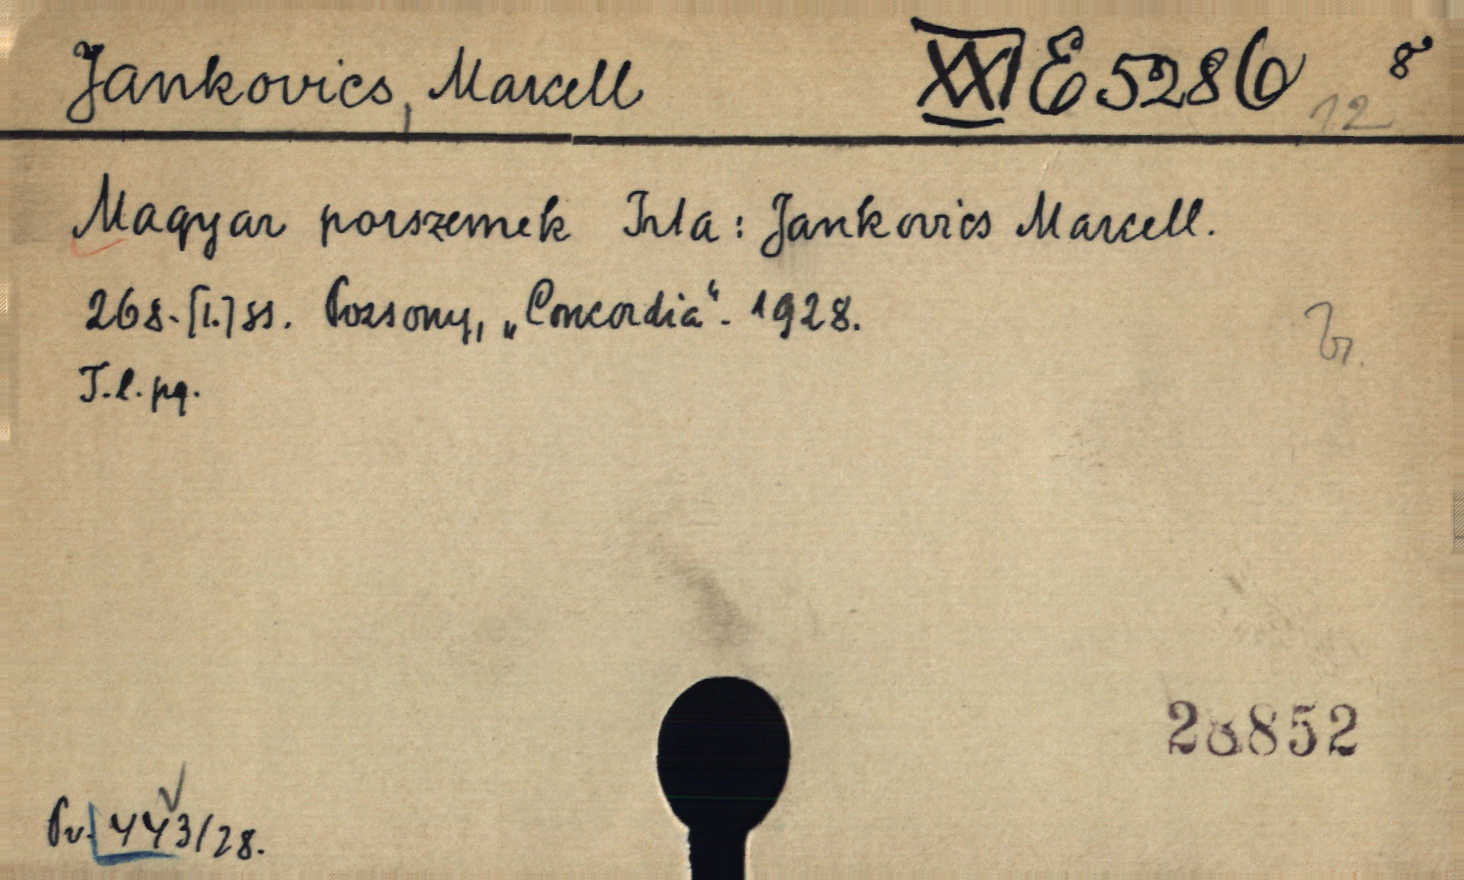 Jankovics, Marcell XXI E 5286 8°
12
Magyar porszemek Irta: Jankovics Marcell.
268.[1.] ss. Pozsony, „Concordia“. 1928.
T. l. pq.
28852
Pv. 443/28.